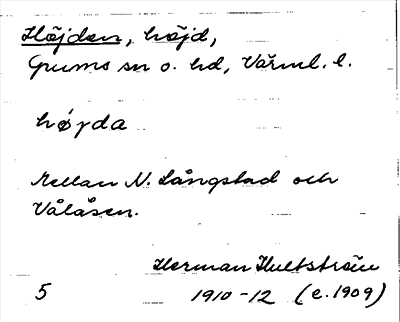 Höjden, höjd,
Grums sn o. hd, Värml. l.
högda
Mellan N. Långstad och
Vålåsen.
Herman Hultström
5 1910-12 (c. 1909)